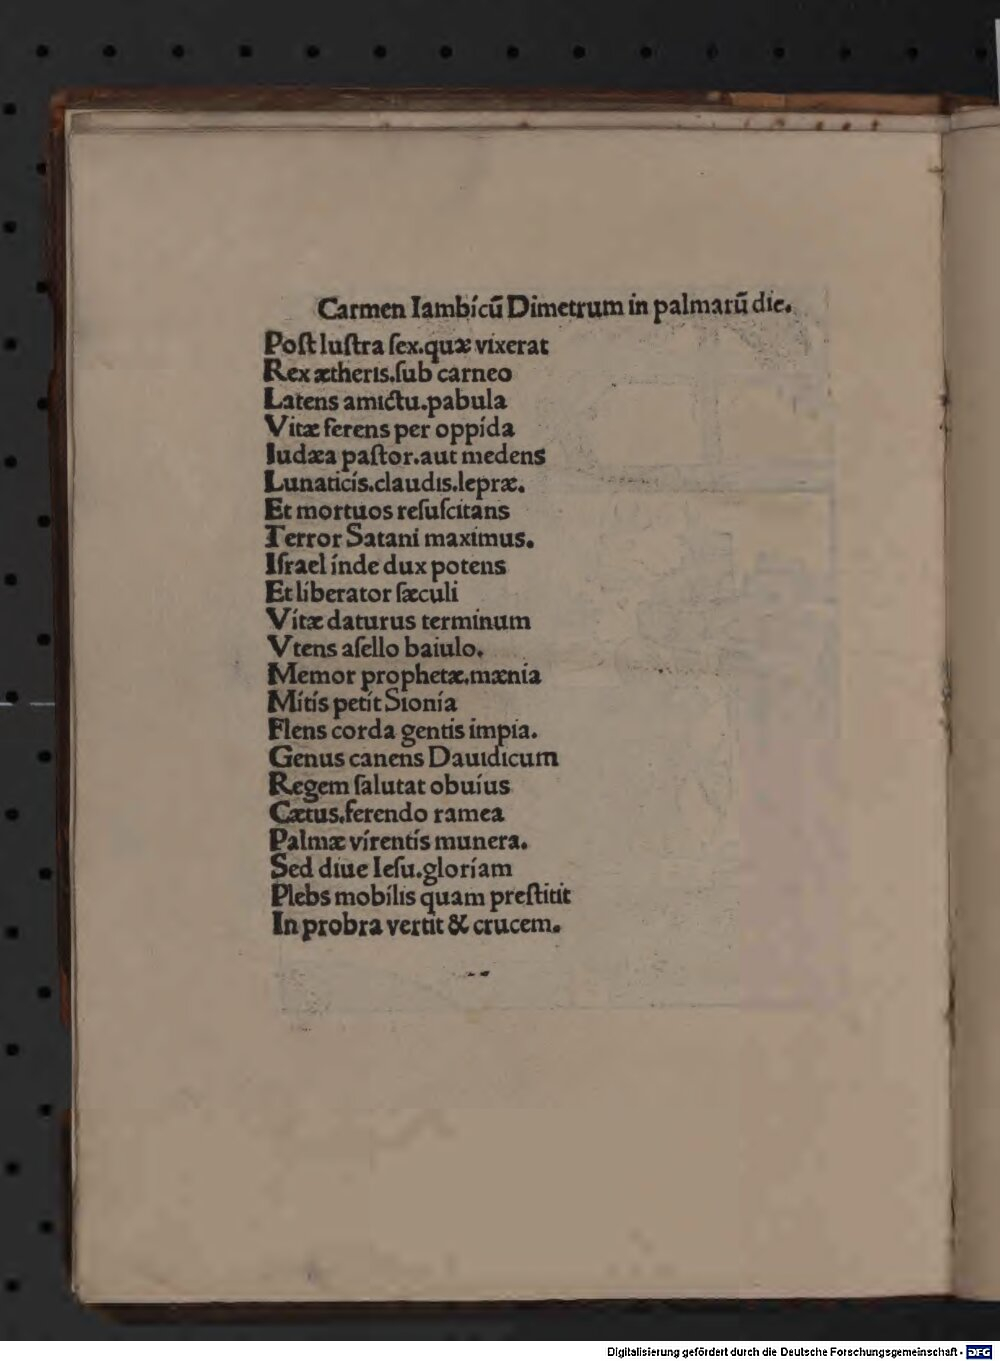 Carmen Iambicū Dimetrum in palmarū die.
Poſt luſtra ſex.quæ vixerat
Rex ætheris.ſub carneo
Latens amictu.pabula
Vitæ ferens per oppida
Iudæa paſtor.aut medens
Lunaticis.claudis.lepræ.
Et mortuos reſuſcitans
Terror Satani maximus.
Iſrael inde dux potens
Et liberator ſæculi
Vitæ daturus terminum
Vtens aſello baiulo.
Memor prophetæ.mænia
Mitis petit Sionia
Flens corda gentis impia.
Genus canens Dauidicum
Regem ſalutat obuius
Cætus.ferendo ramea
Palmæ virentis munera.
Sed diue Ieſu.gloriam
Plebs mobilis quam preſtitit
In probra vertit & crucem.
Digitalisierung gefördert durch die Deutsche Forschungsgemeinschaft - DFG